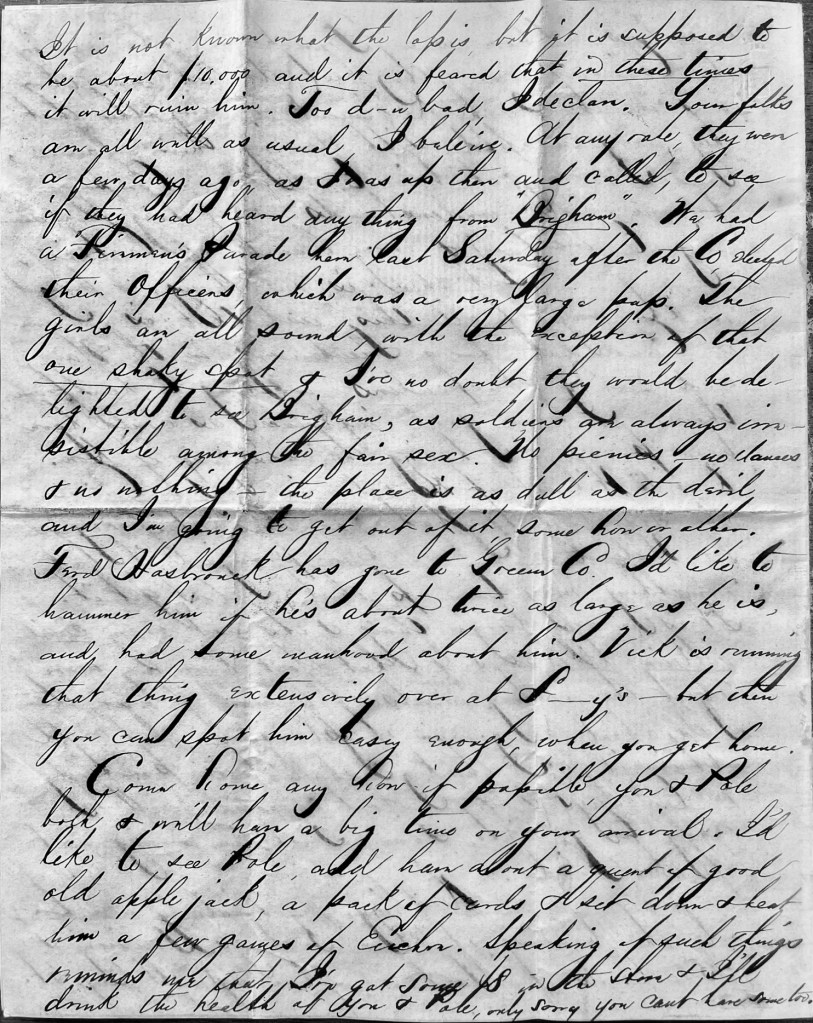 It is not known what the loss is, but it is supposed to
be about $10,000 and it is feared that in these times
it will ruin him. Too d-n bad, I declare. Your folks
are all well as usual I believe. At any rate, they were
a few days ago, as I was up there and called, to see
if they had heard any thing from "Brigham". We had
a Firemen's Parade here last Saturday after the Co elected
their Officers, which was a very large pap. The
girls are all sound, with the exception of that
one shaky spot & I've no doubt they would be de-
lighted to see Brigham, as soldiers are always irre-
sistible among the fair sex. No picnics - no dances
& no nothing - the place is as dull as the devil
and I'm going to get out of it, some how or other.
Ferd Hasbrouck has gone to Greene Co. I'd like to
hammer him if he's about twice as large as he is,
and had some manhood about him. Vick is running
that thing extensively over at S—y's - but then
you can spot him easy enough, when you get home.
Come home any how if possible, you & Pole
both & we'll have a big time on your arrival. I'd
like to see Pole, and have about a quart of good
old apple jack, a pack of cards & sit down & beat
him a few games of Euchre. Speaking of such things
reminds me that I've got some in the store & I'll
drink the health of you & Pole, only sorry you cant have some too.